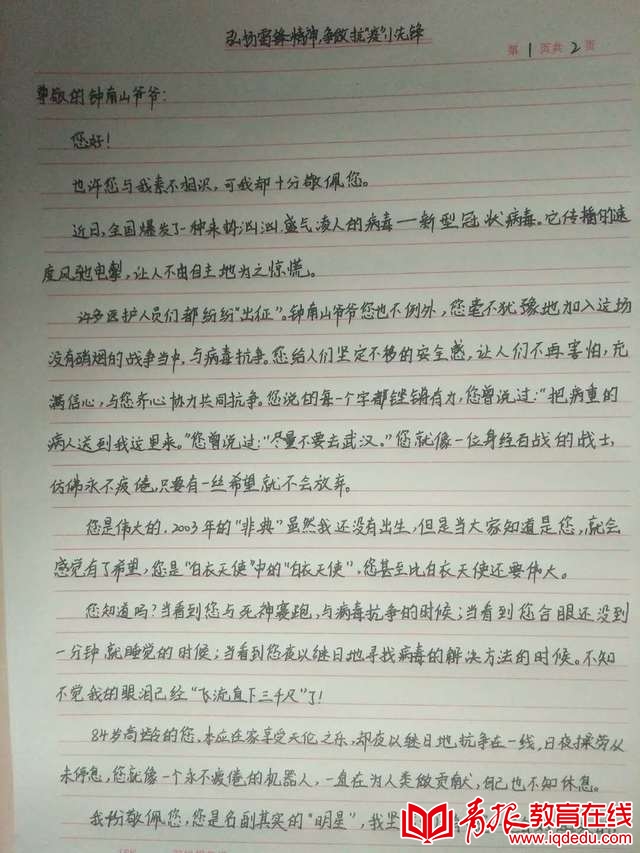 弘扬雷锋精神,争做抗“疫”小先锋
第1页共2页
尊敬的钟南山爷爷:
您好!
也许您与我素不相识,可我却十分敬佩您。
近日,全国爆发了一种来势汹汹盛气凌人的病毒—新型冠状病毒。它传播的速
度风驰电掣,让人不由自主地为之惊慌。
许多医护人员们都纷纷“出征”。钟南山爷爷您也不例外,您毫不犹豫地加入这场
没有硝烟的战争当中,与病毒抗争。您给人们坚定不移的安全感,让人们不再害怕,充
满信心,与您齐心协力共同抗争。您说的每一个字都铿锵有力,您曾说过:“把病重的
病人送到我这里来。”您曾说过:“尽量不要去武汉。”您就像一位身经百战的战士,
仿佛永不疲倦,只要有一丝希望就不会放弃。
您是伟大的,2003年的“非典”虽然我还没有出生,但是当大家知道是您,就会
感觉有了希望,您是“白衣天使”中的“白衣天使”,您甚至比白衣天使还要伟大。
您知道吗?当看到您与死神赛跑,与病毒抗争的时候;当看到您合眼还没到
一分钟就睡觉的时候;当看到您夜以继日地寻找病毒的解决方法的时候。不知
不觉我的眼泪已经“飞流直下三千尺”了!
84岁高龄的您,本应在家享受天伦之乐,却夜以继日地抗争在一线,日夜操劳从
未停息,您就像一个永不疲倦的机器人,一直在为人类做贡献,自己也不知休息。
我份敬佩您,您是名副其实的“明星”,我坚
青报教育在线
www.iqdedu.com